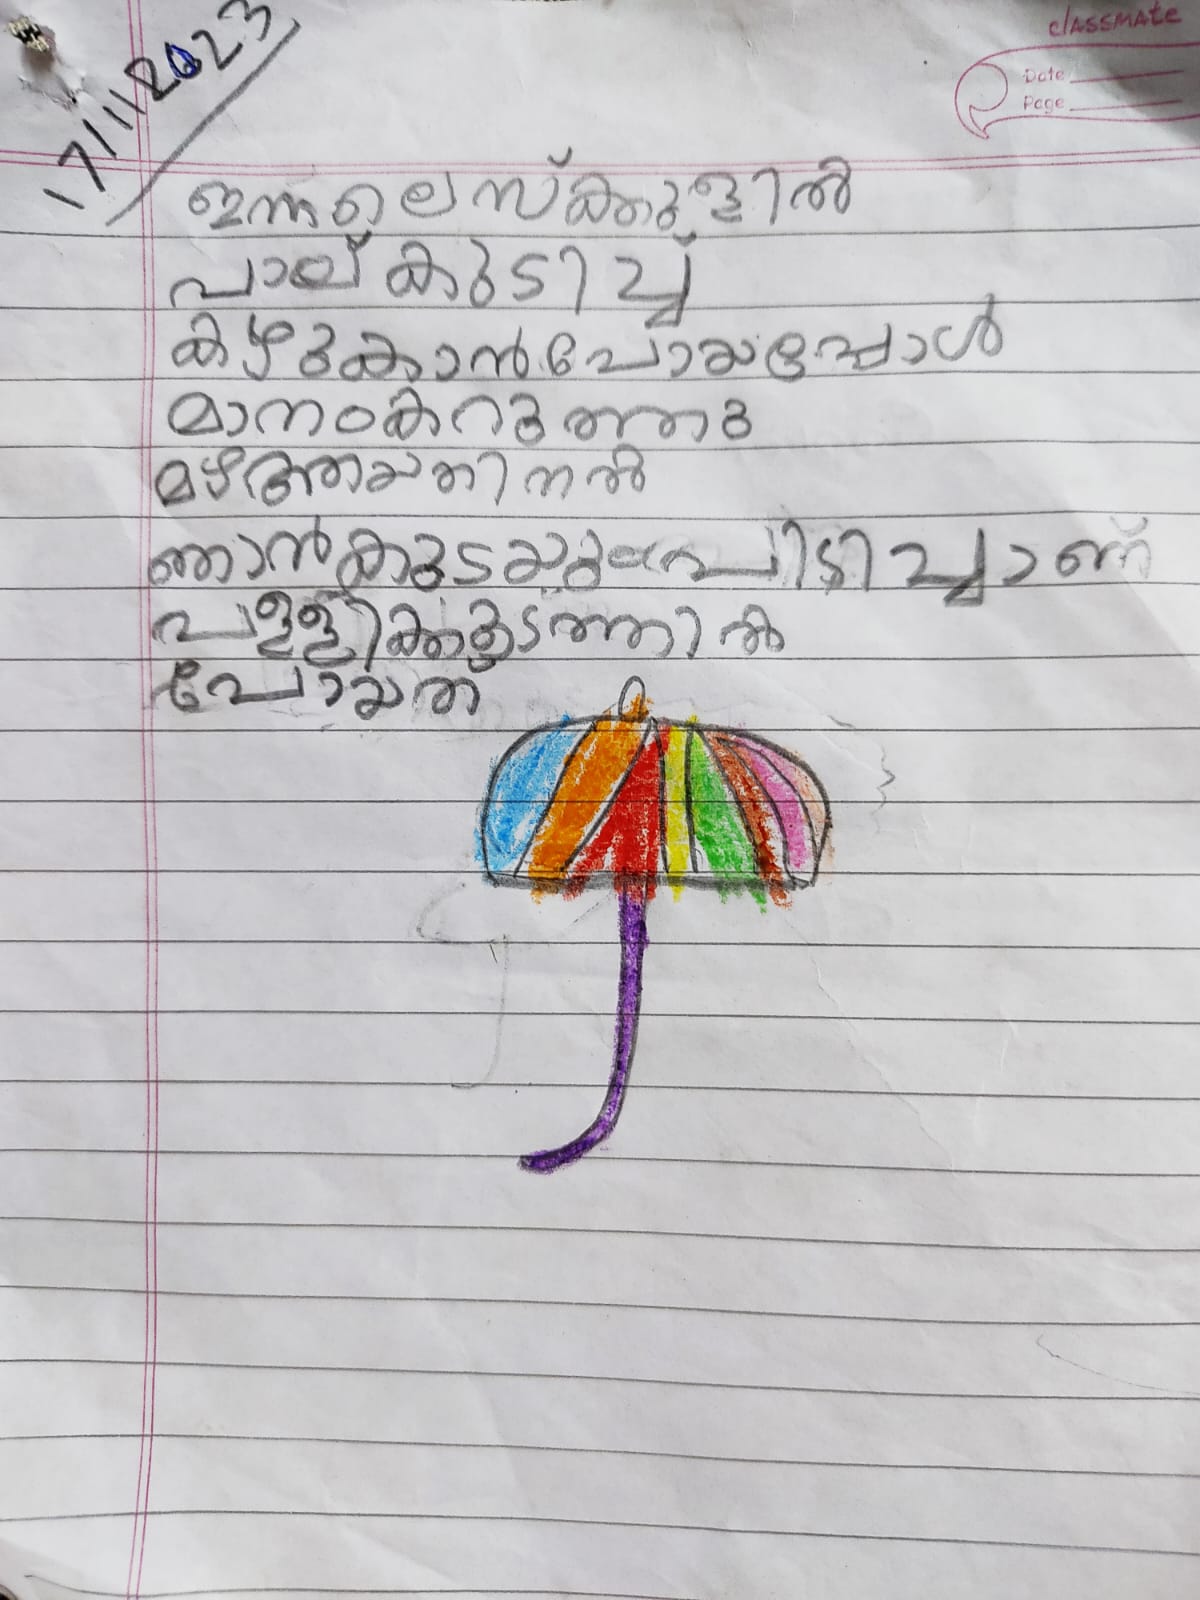 classmate
Date
Page
17/11/2023
ഇന്നലെ സ്ക്കുളിൽ
പാല് കുടിച്ച്
കഴുകാൻ പോയപ്പോൾ
മാനം കറുത്തു
മഴആയതിനൽ
ഞാൻ കുടയും പിടിച്ചാണ്
പള്ളിക്കുടത്തിൽ
പോയത്